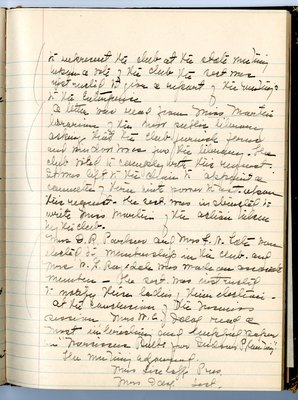 to represent the club at the state meeting
upon a vote of the club the sect was
instructed to give a report of the meeting
to the Enterprise
A letter was read from Miss Martin
librarian of the new public library
asking that the club furnish ferns
and window box for the library. The
club voted to comply with this request.
It was left to the chair to appoint a
committee of three
this request. The sect. was instructed to
write Miss Martin of the action taken
by the club.
Mrs. D. R. and Mrs. E. W. were
elected to membership in the club. and
Mrs. W. R. Ragsdale was made an associate
member - The sect. was instructed
to notify these ladies of their election.
At the conclusion of the business
session Mrs. W. C. read a
most interesting and helpful paper
on "Narcissus Bulbs for Outdoor Planting"
The meeting adjourned.
Miss Pres.
Miss Day Sect.